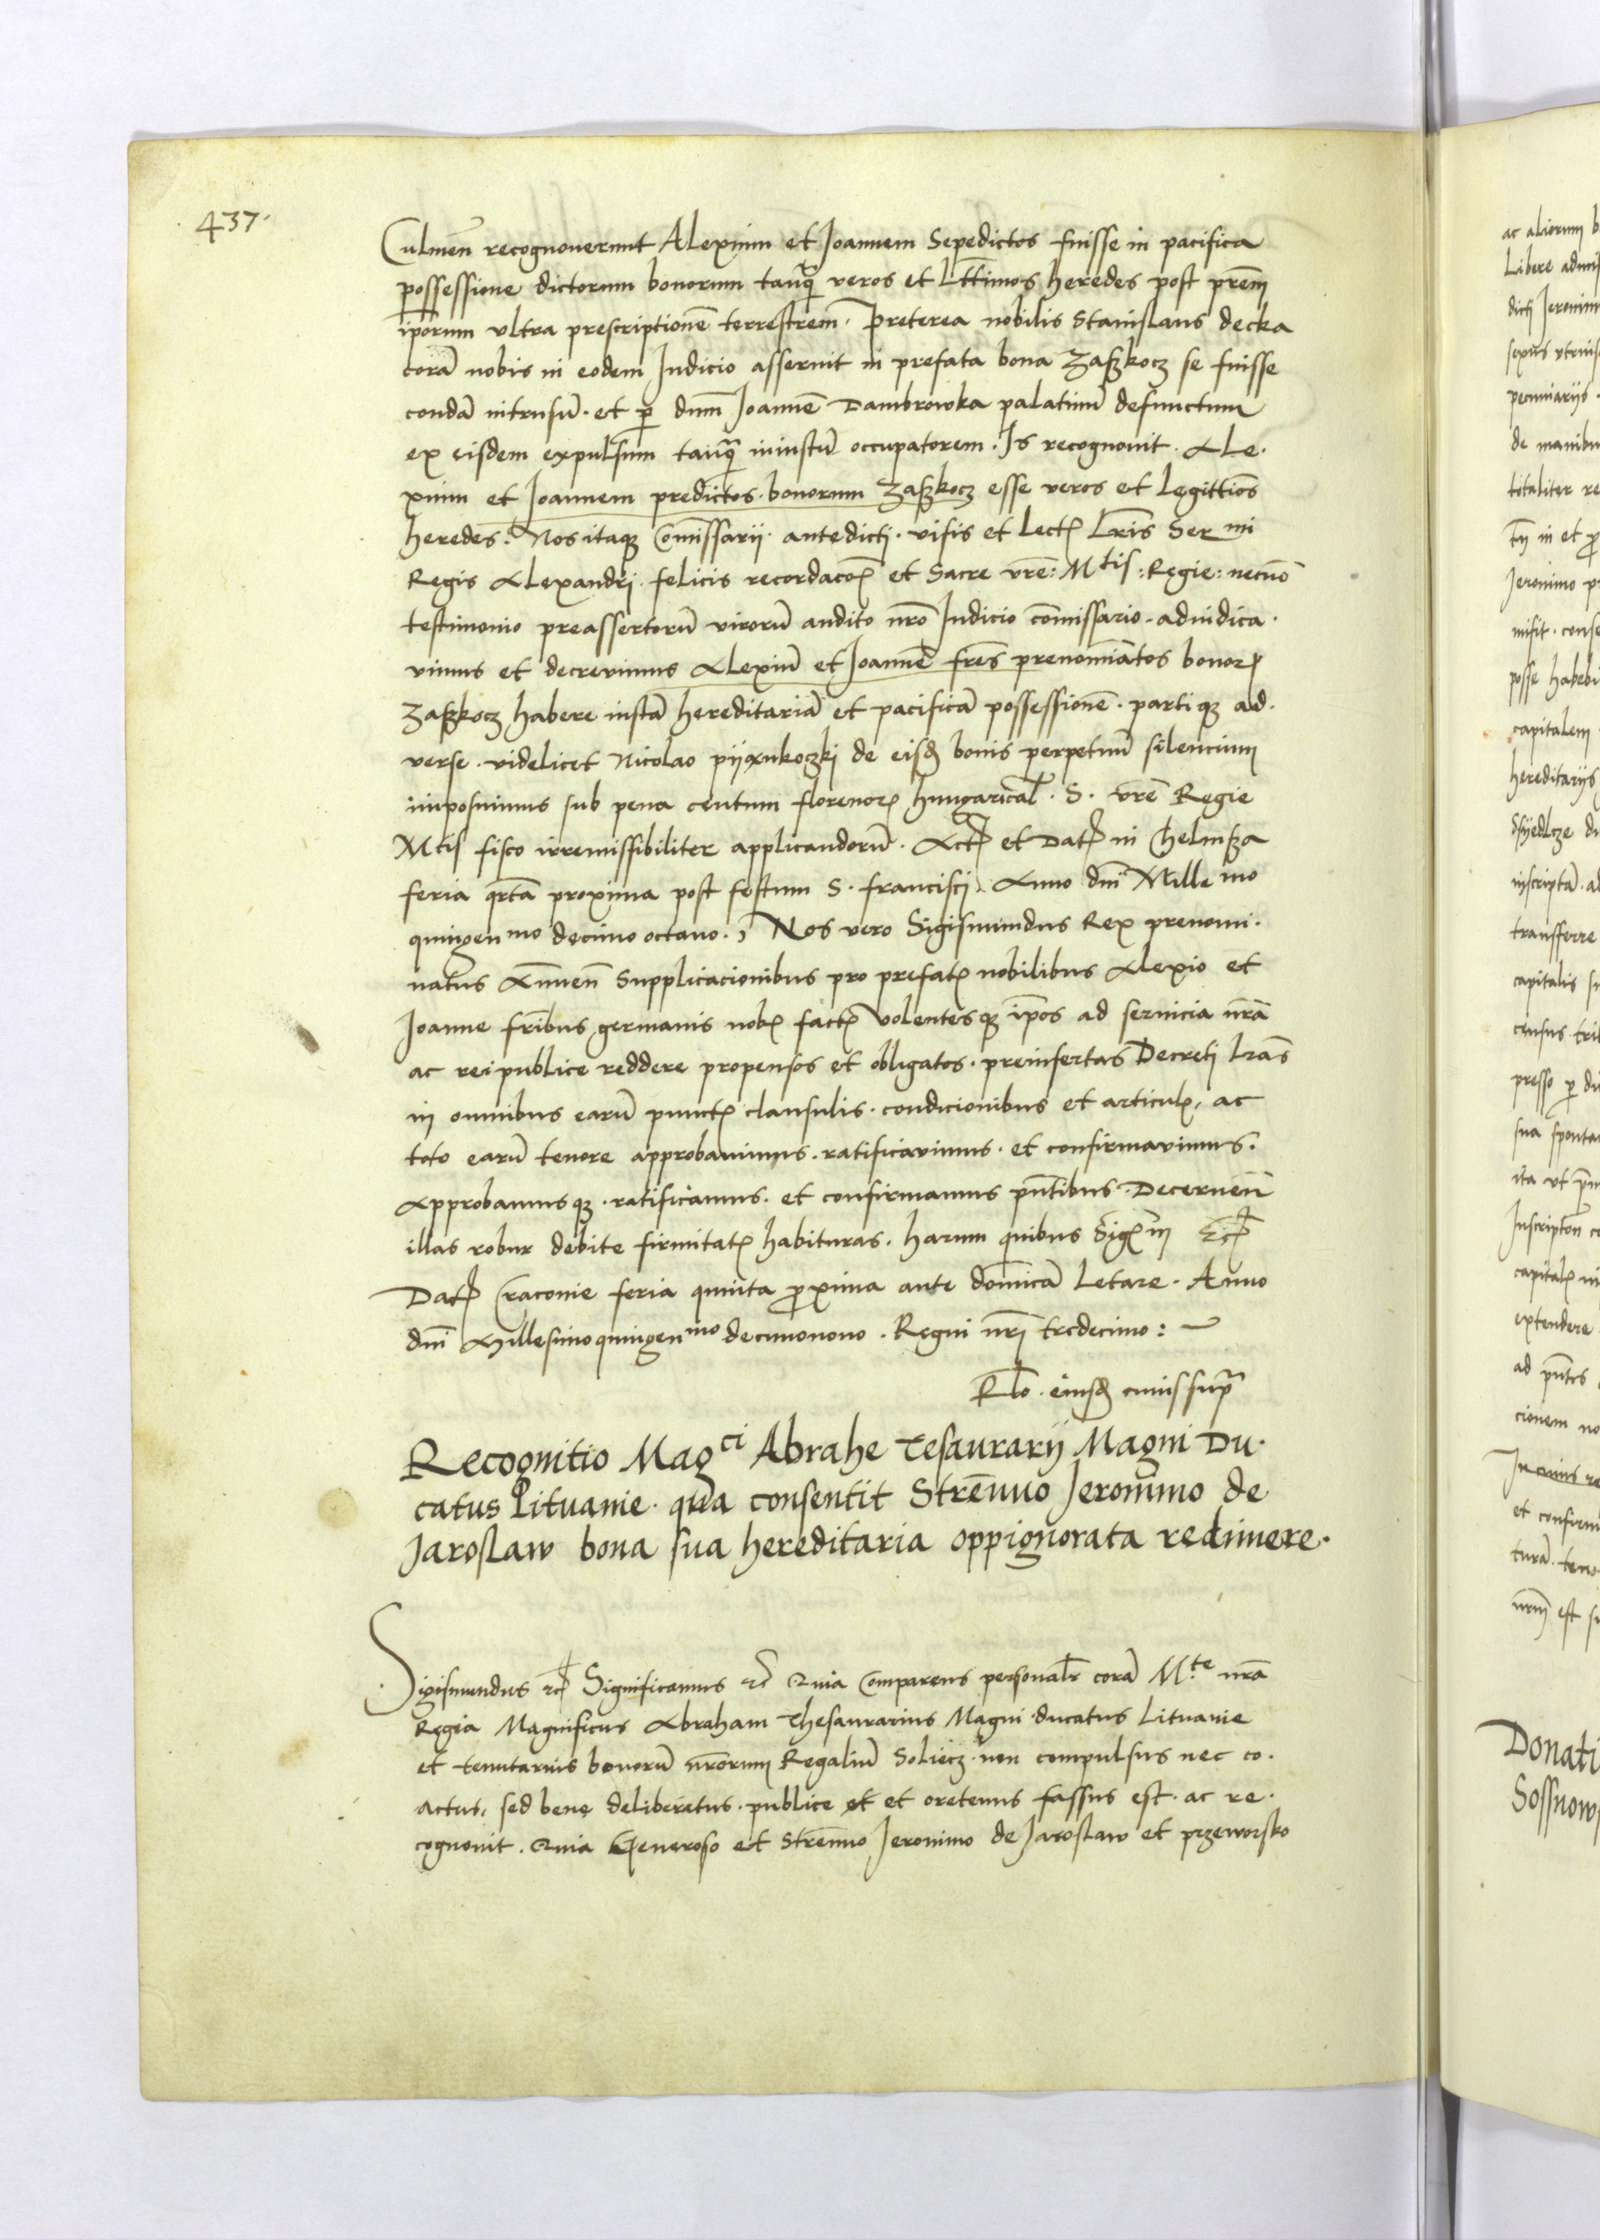 437.
Culmen̄ recognoverunt Alexium et Joannem Sepedictos fuisse in pacifica
possessione dictorum bonorum tanq̃ veros et Lttimos heredes post prēm
ip̄orum vltra prescriptionē terrestrem. Preterea nobilis Stanislaus decka
corā nobis in eodem Judicio asseruit in prefata bona Zaßkocz se fuisse
condā intrusū. et p̱ dnm̄ Joannē Dambrowka palatinū defunctum
ex eisdem expulsum tanq̃ iniustū occupatorem. Is recognovit. Ale.
xium et Joannem predictos. bonorum Zaßkocz esse veros et Legittiōs
heredes. Nos itaq; Com̄issarii. antedicti. visis et Lectꝭ Lrīs Ser mi
Regis Alexandri felicis recordacōꝭ et Sacre vrē: Mtis: Regie: necnō
testimonio preassertorū virorū audito nrō Judicio com̄issario. adiudica.
vimus et decrevimus Alexiū et Joannē frēs prenomīatos bonorꝭ
Zaßkocz habere iustā hereditariā et pacificā possessionē. partiq; ad.
verse. videlicet Nicolao piixukoczki de eisd̄ bonis perpetuū silencium
imposuimus sub pena centum florenorꝭ hungarical̄. S. vrē Regie
Mtis fisco irremissibiliter applicandorū. Actꝭ et Datꝭ in Chelmßa
feria qrtā proxima post festum S. francisci. Anno dnī Mille mo
quingen mo decimo octavo. Nos vero Sigismundus Rex prenomi.
natus Annuen̄ Supplicacionibus pro prefatꝭ nobilibus Alexio et
Joanne frībus germanis nobꝭ factꝭ Volentesq; ip̄os ad servicia nrā
ac reipublice reddere propensos et obligatos. preinsertas Decreti Lrās
in omnibus earū punctꝭ clausulis. condicionibus et articulꝭ, ac
toto earū tenore approbavimus. ratificavimus. et confirmavimus.
Approbamusq;. ratificamus. et confirmamus pn̄tibus. Decernen̄
illas robur debite firmitatꝭ habituras. harum quibus Sigꝭ in &cꝭ
Datꝭ Cracovie feria quinta p̱xima ante dom̄icā Letare. Anno
dnī Millesimoquingen mo decimonono. Regni nrī tredecimo:
Rlō. eiusd̄ cuius supͣ
Recognitio Magci Abrahe Tesaurarij Magni Du.
catus Lituanie. qua consentit Strēnuo Jeronimo de
Jaroslaw bona sua hereditaria oppignorata redimere.
Sigismundus &c Significamus &c Quia Comparens personalr̄ corā Mte nrā
Regia Magnificus Abraham Thesaurarius Magni ducatus Lituanie
et tenutarius bonorū nrōrum Regaliū Soliecz. non compulsus nec co.
actus, sed bene deliberatus. publice et et oretenus fassus est. ac re.
cognovit. Quia Generoso et Strēnuo Jeronimo de Jaroslaw et przeworsko
ac aliorum b
Libere admis
dicti Jeronim
pecuniariis.
de manibu
totaliter re
Jeronimo p
misit. conse
posse habebi
capitalem
hereditariis
transferre
capitalis su
census tri
sua sponta
ita vt
extendere
cionem no
et confirm
Donati
Sossnow